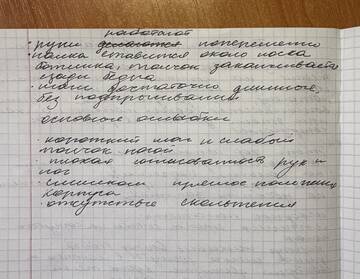 работают
· руки делаются попеременно
· палка ставится около носка
ботинка, толчок заканчивается
сзади бедра
· шаги достаточно длинные,
без подпрыгивания
основные ошибки
· короткий шаг и слабый
толчок ногой
· плохая согласованность рук и
ног
· слишком прямое положение
корпуса
· отсутствие скольжения